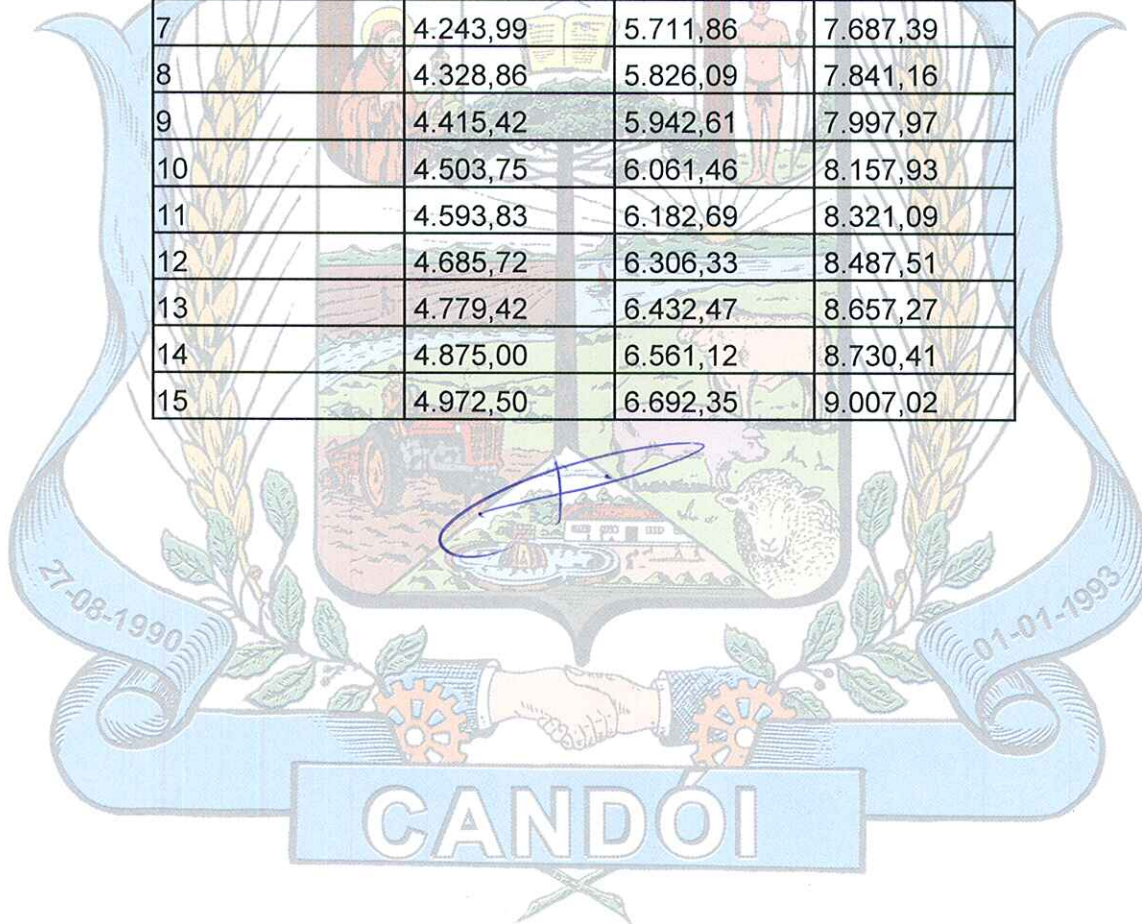 7 4.243,99 5.711,86 7.687,39
8 4.328,86 5.826,09 7.841,16
9 4.415,42 5.942,61 7.997,97
10 4.503,75 6.061,46 8.157,93
11 4.593,83 6.182,69 8.321,09
12 4.685,72 6.306,33 8.487,51
13 4.779,42 6.432,47 8.657,27
14 4.875,00 6.561,12 8.730,41
15 4.972,50 6.692,35 9.007,02
27-08-1990 01-01-1993
CANDÓI